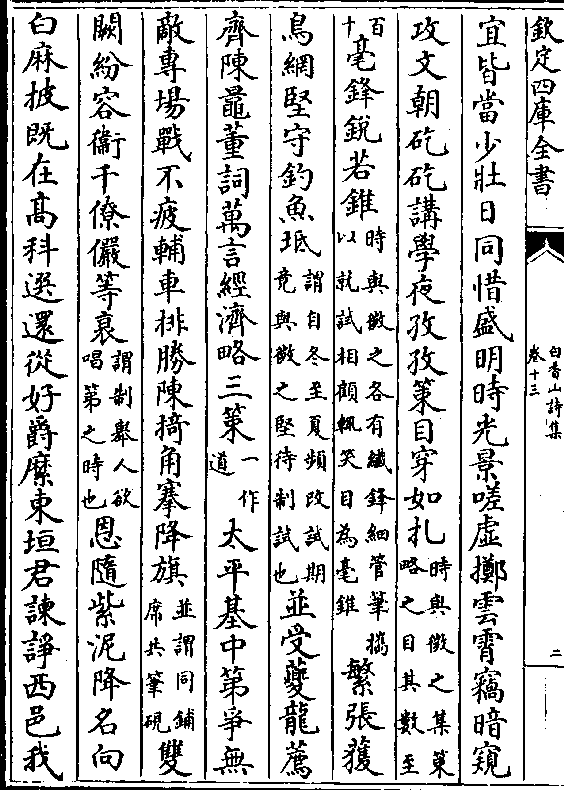 欽定四庫全書
白香山詩集
卷十三
二
宜皆當少壯日同惜盛明時光景嗟虛擲雲霄竊暗窺
攻文朝矻矻講學夜孜孜策目穿如札時與微之某策略之目其數至
百十毫鋒銳若錐時與微之各有纖鋒細管筆攜以就試相顧輒笑目為毫錐繁張獲
鳥網堅守釣魚坻謂自冬至夏頻改試期竟與微之堅待制試也並受夔龍薦
齊陳鼂董詞萬言經濟略三策一作道太平基中第爭無
敵專場戰不疲輔車排勝陳掎角搴降旗並謂同鋪席共筆硯雙
闕紛容衞千僚儼等衰謂制舉人欲唱第之時也恩隨紫泥降名向
白麻披既在高科選還從好爵縻東垣君諫諍西邑我